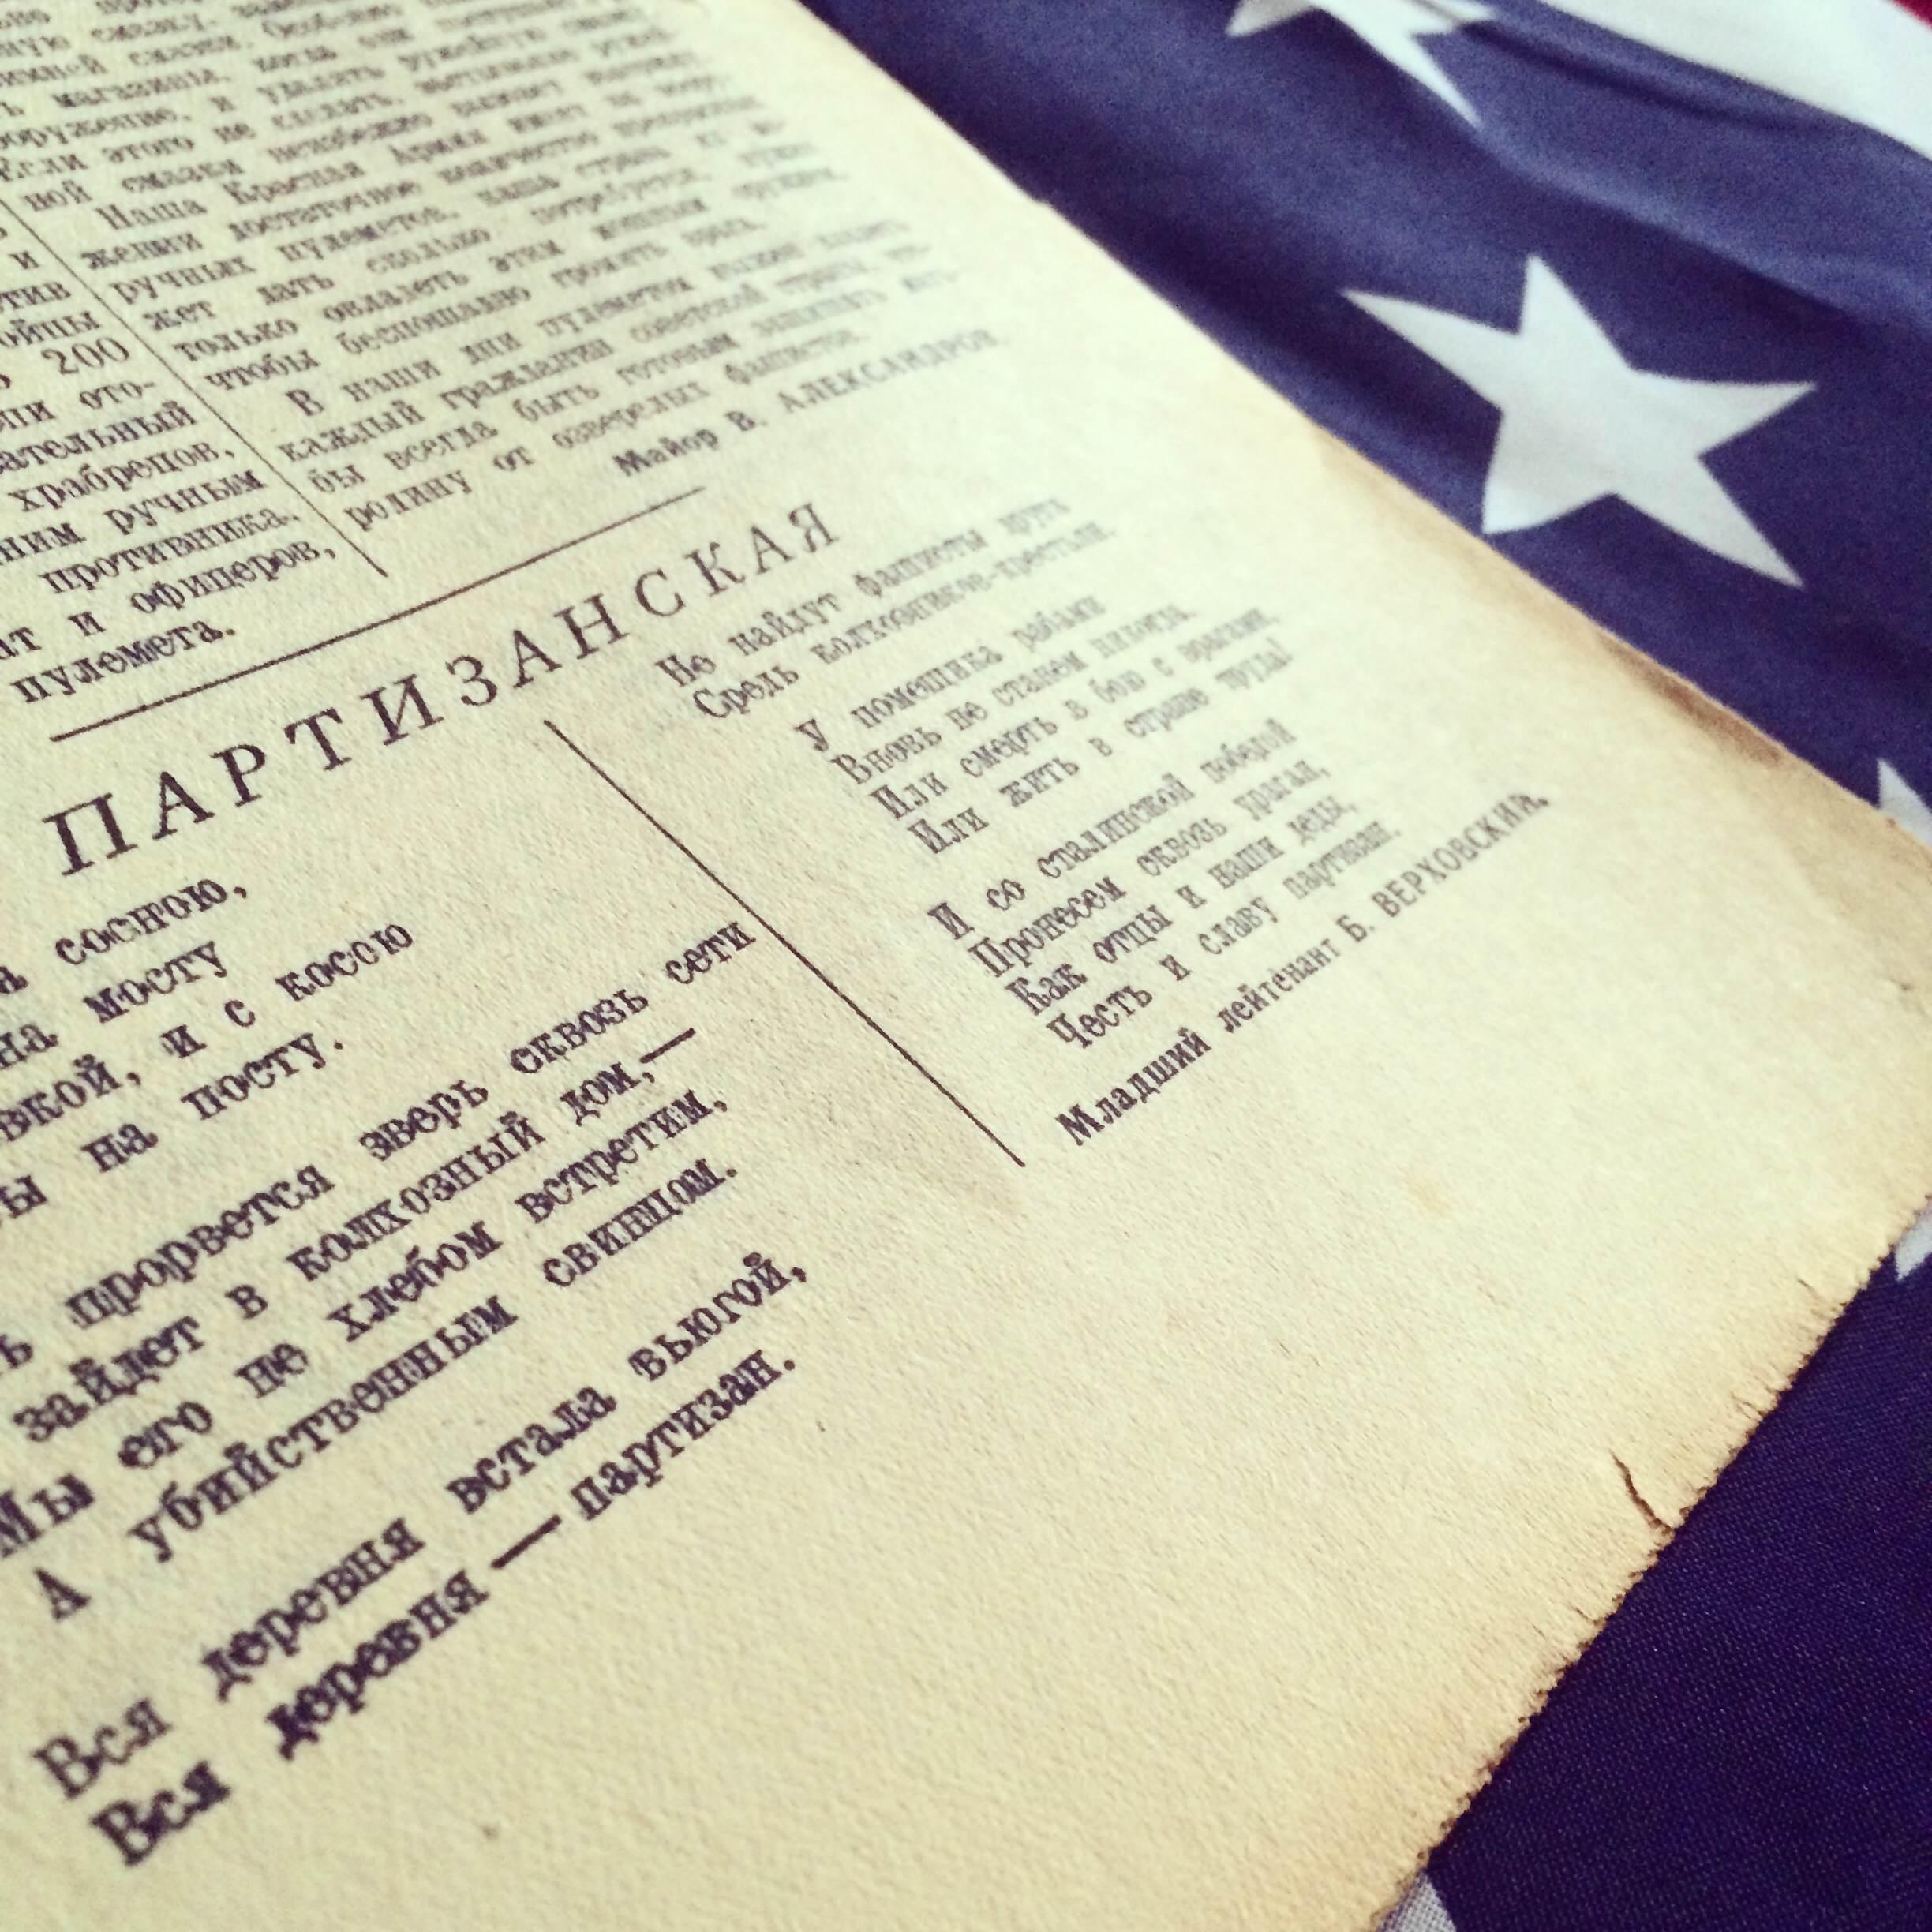 ную смазку,
магазина, когда они
вооружение, и удалять ружейную
Если этого не сделать,
ной смазки неизбежно
Наша Красная Армия имеет на воору-
жении достаточное количество прекрасных
ручных пулеметов, наша страна
жет дать сколько потребуется,
только овладеть этим мощным оружием,
чтобы беспощадно громить врага.
В наши дни пулеметом должен владеть
каждый гражданин советской страны,
бы всегда быть готовым защищать
родину от озверелых фашистов.
Майор В. АЛЕКСАНДРОВ.
и
200
ото-
храбрецов,
ручным
противника.
и офицеров,
пулемета.
ПАРТИЗАНСКАЯ
сосною,
на мосту
и с косою
на посту.
прорвется зверь сквозь сети
зайдет в колхозный дом,—
Мы его не хлебом встретим,
А убийственным свинцом.
Вся деревня встала вьюгой,
Вся деревня — партизан.
Не найдут фашисты друга
Средь колхозников-крестьян.
У помещика рабами
Вновь не станем никогда.
Или смерть в бою с врагами,
Или жить в стране труда!
И со сталинской победой
Пронесем сквозь ураган,
Как отцы и наши деды,
Честь и славу партизан.
Младший лейтенант Б. ВЕРХОВСКИЙ.